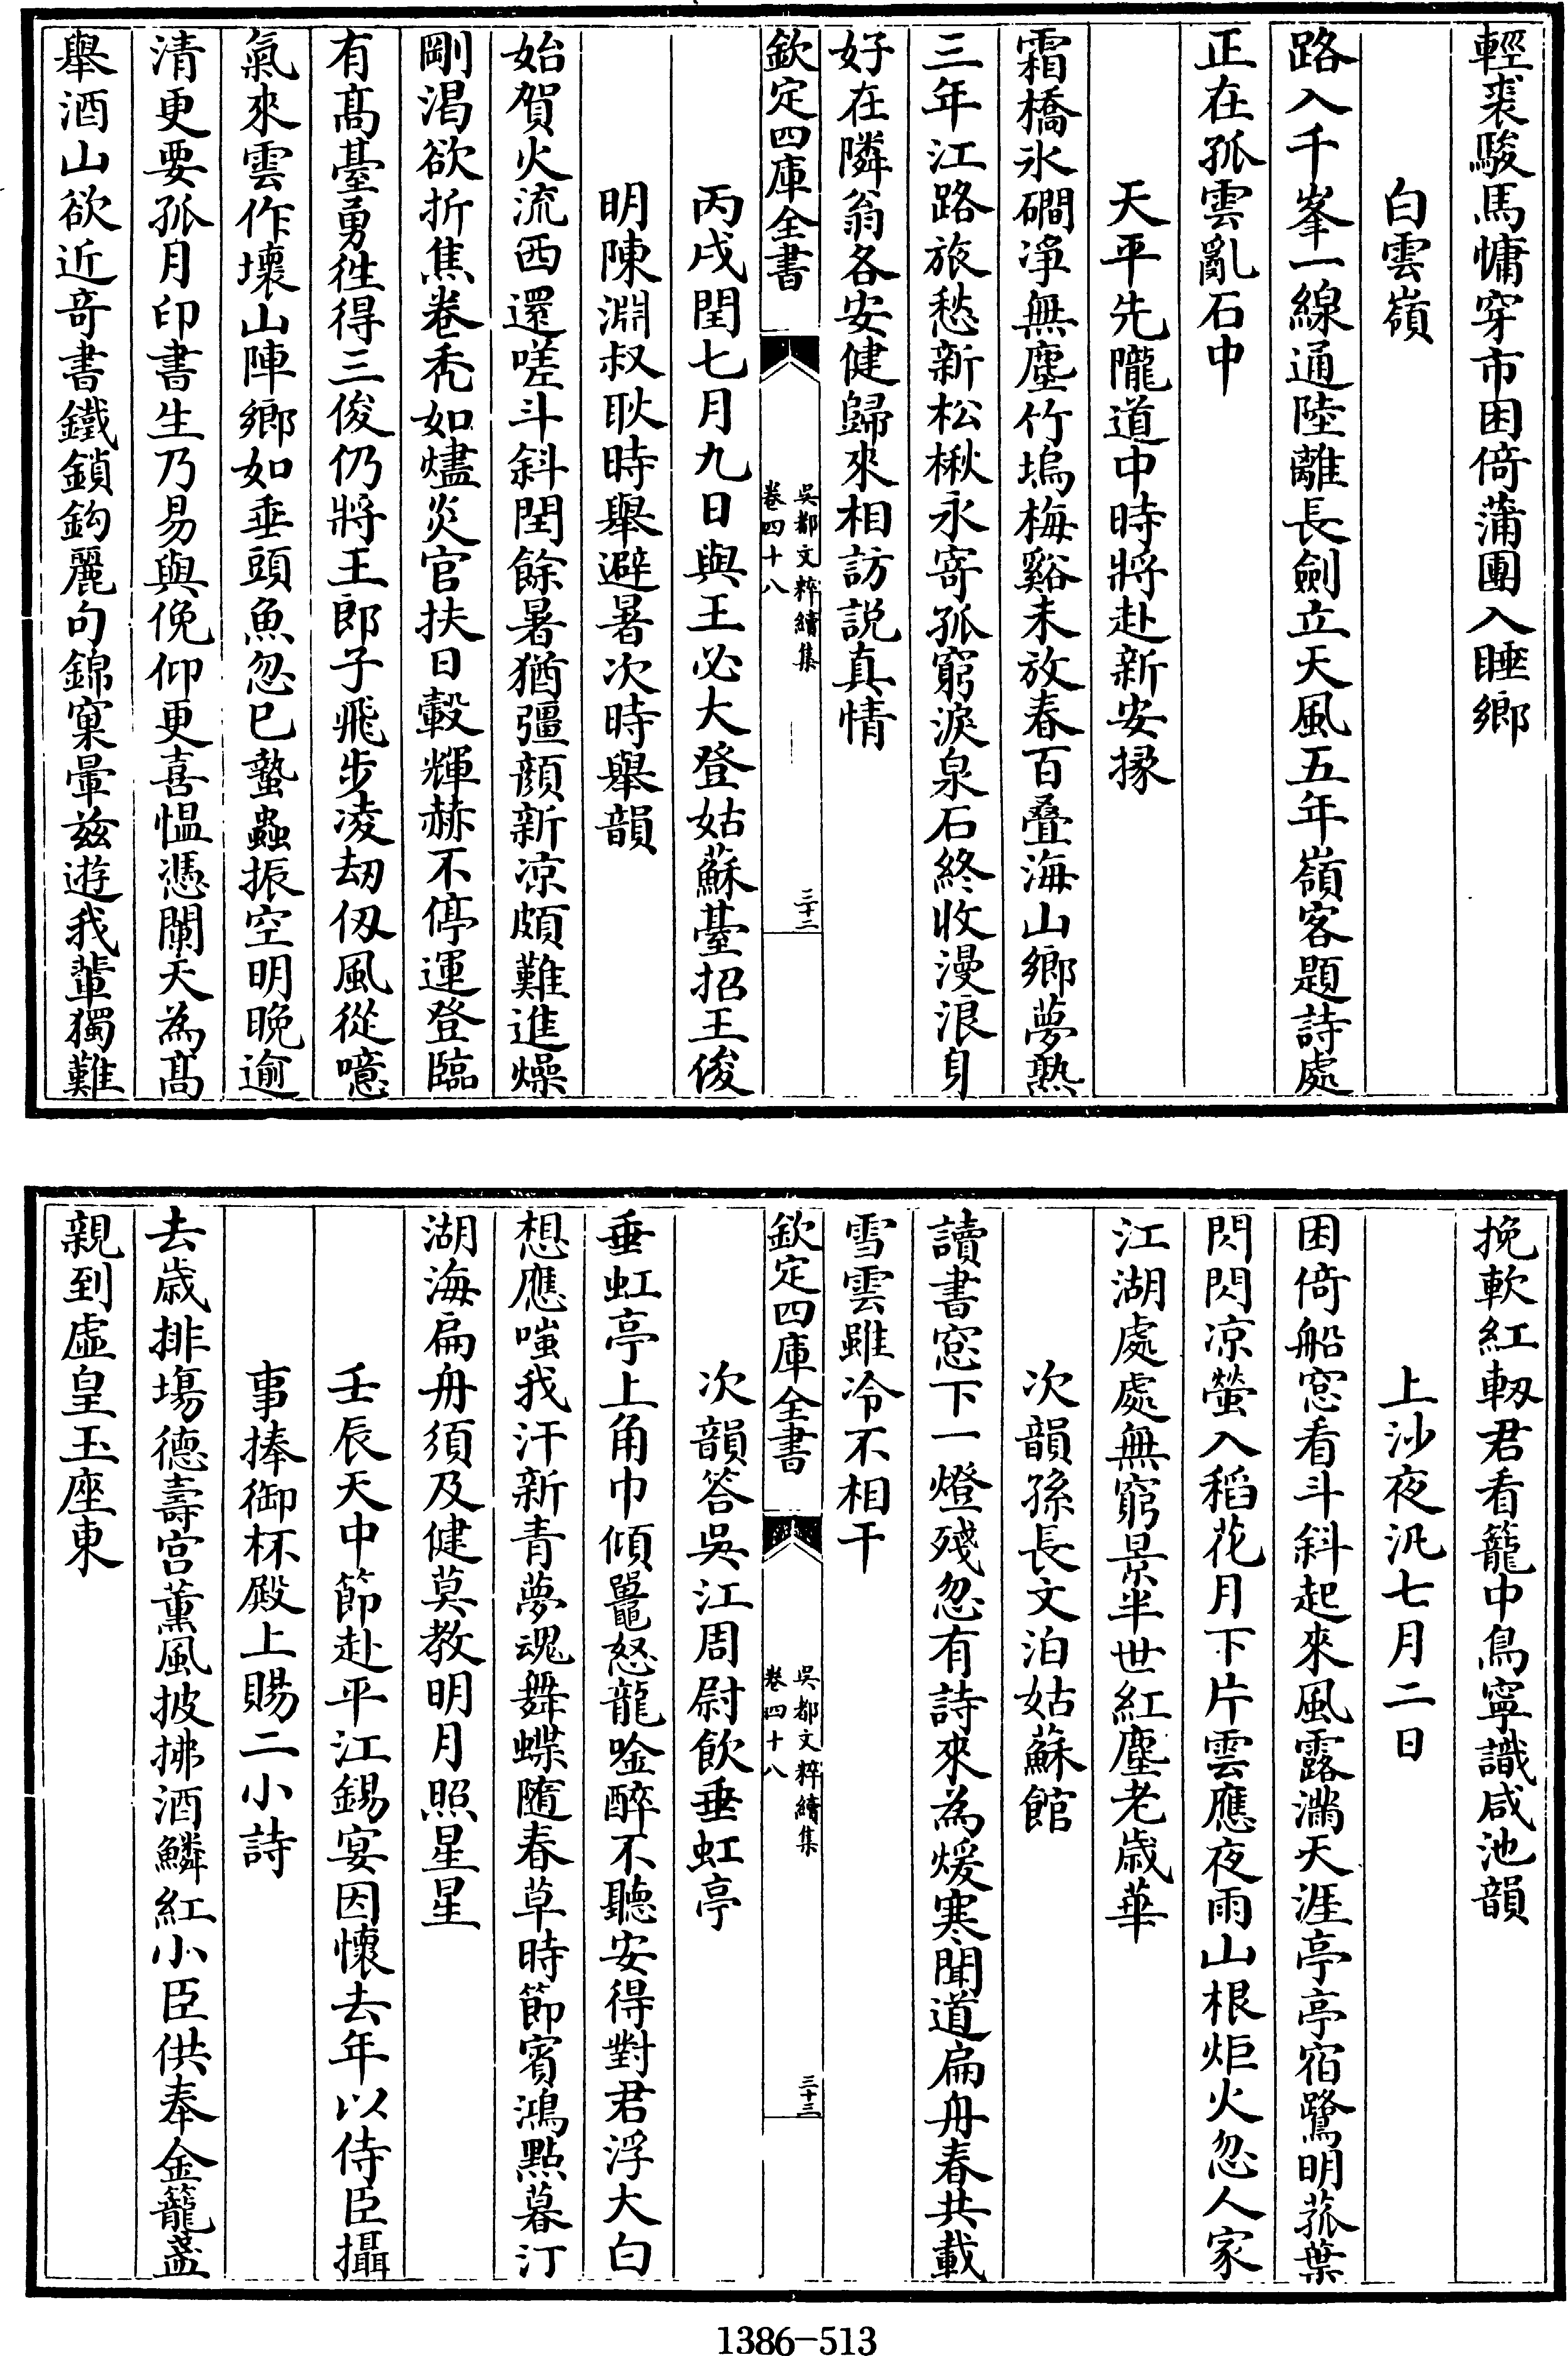 輕裘駿馬慵穿市困倚蒲團入睡鄉
白雲嶺
路入千峯一線通陸離長劍立天風五年嶺客題詩處
正在孤雲亂石中
天平先隴道中時將赴新安掾
霜橋氷磵淨無塵竹塢梅谿未放春百疊海山鄉夢熟
三年江路旅愁新松楸永寄孤窮淚泉石終收漫浪身
好在隣翁各安健歸來相訪説真情
欽定四庫全書
吳都文粹續集
卷四十八
三十二
丙戌閏七月九日與王必大登姑蘇臺招王俊
明陳淵叔耿時舉避暑次時舉韻
始賀火流西還嗟斗斜閏餘暑猶彊顔新凉頗難進燥
剛渴欲折焦卷禿如燼炎官扶日轂輝赫不停運登臨
有髙臺勇徃得三俊仍將王郎子飛步凌刼仭風從噫
氣來雲作壞山陣鄉如垂頭魚忽已蟄蟲振空明晚逾
清更要孤月印書生乃易與俛仰更喜愠憑闌天為髙
舉酒山欲近竒書鐵鎖鈎麗句錦窠暈兹遊我輩獨難
挽軟紅軔君看籠中鳥寧識咸池韻
上沙夜汎七月二日
困倚船窓看斗斜起來風露滿天涯亭亭宿鷺明菰葉
閃閃凉螢入稻花月下片雲應夜雨山根炬火忽人家
江湖處處無窮景半世紅塵老歳華
次韻孫長文泊姑蘇館
讀書窓下一燈殘忽有詩來為煖寒聞道扁舟春共載
雪雲雖冷不相干
欽定四庫全書
吳都文粹續集
卷四十八
三十三
次韻答吳江周尉飲垂虹亭
垂虹亭上角巾傾鼉怒龍吟醉不聽安得對君浮大白
想應嗤我汗新青夢魂舞蝶隨春草時節賓鴻點暮汀
湖海扁舟須及健莫教明月照星星
壬辰天中節赴平江錫宴因懷去年以侍臣攝
事捧御杯殿上賜二小詩
去歳排塲德壽宫薰風披拂酒鱗紅小臣供奉金籠盞
親到虛皇玉座東
1386-513